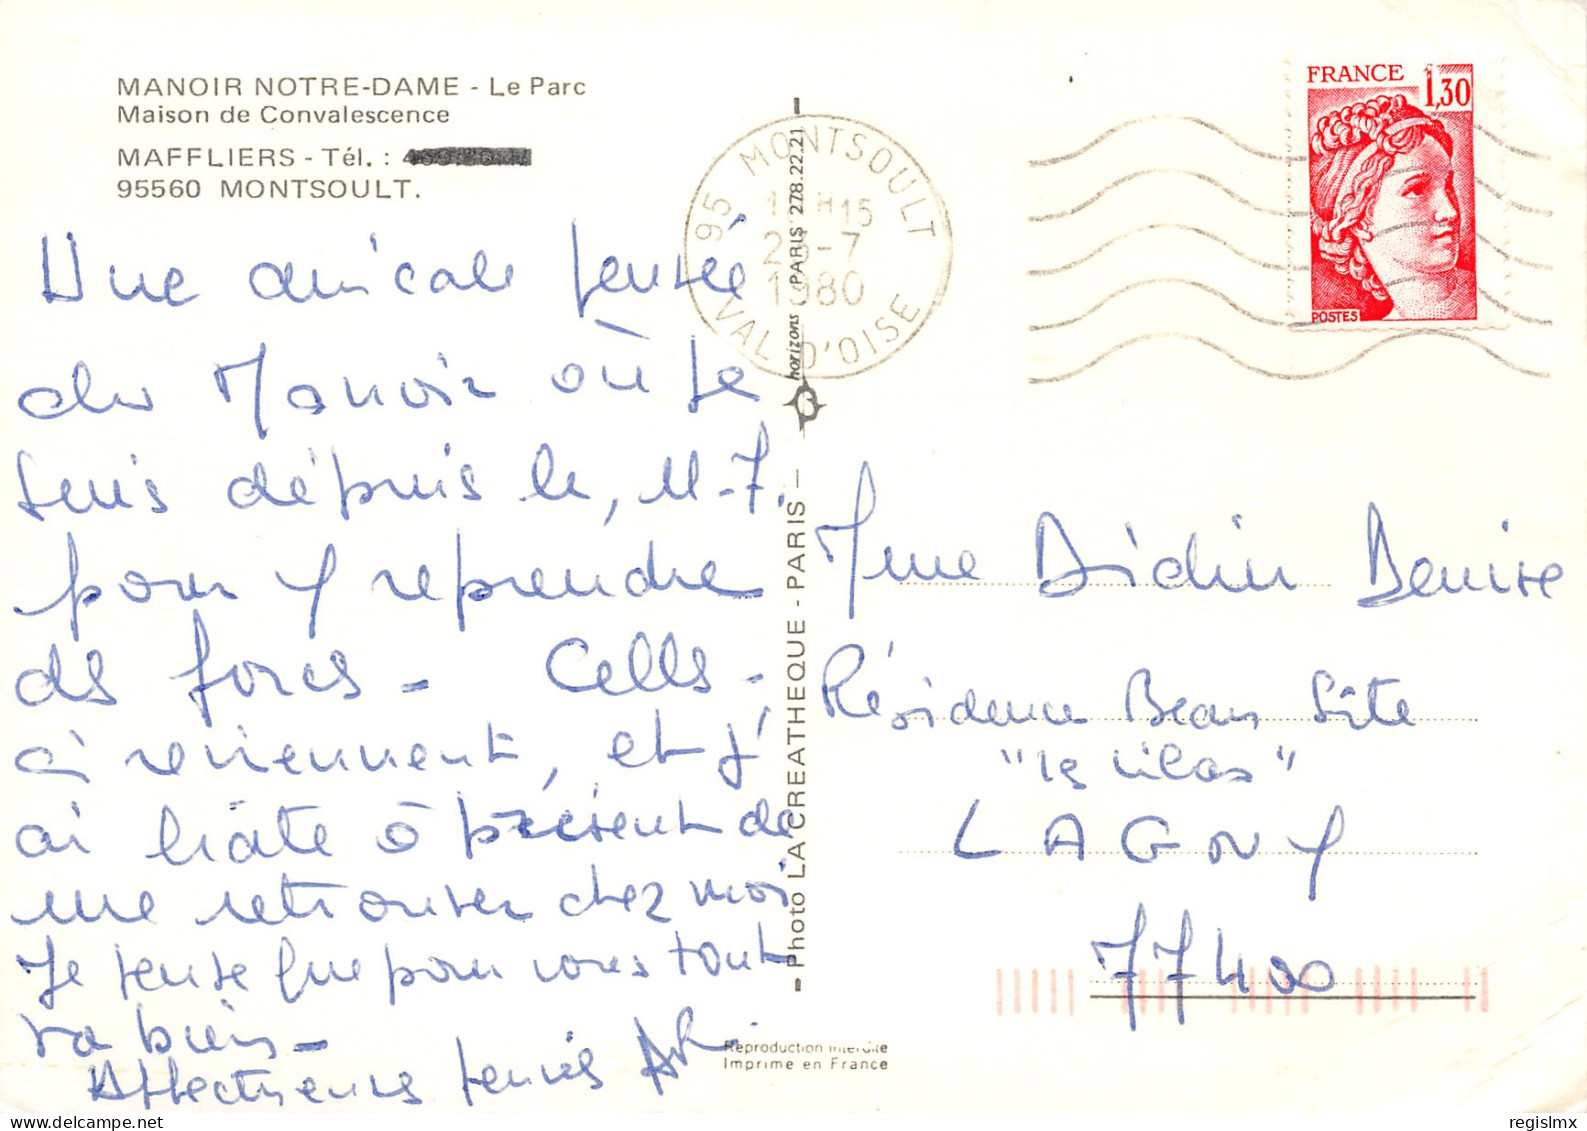 MANOIR NOTRE-DAME - Le Parc
Maison de Convalescence
MAFFLIERS - Tél. :
95560 MONTSOULT.
Une amicale pensée
du Manoir où je
suis dépuis le, 11-7.
pour y reprendre
des forces - Celles-
ci reviennent, et j'
ai hâte à présent de
me retrouver chez moi
Je pense que pour vous tout
va bien -
Affectueuses pensées
95 MONTSOULT
H15
-7
1980
VAL D'OISE
horizons PARIS 278.22.21
Photo LA CREATHEQUE - PARIS
Reproduction interdite
Imprime en France
FRANCE 1,30
POSTES
Mme Didin Denise
Résidence Beau Site
"les lilas"
LAGNY
77400
regislmx